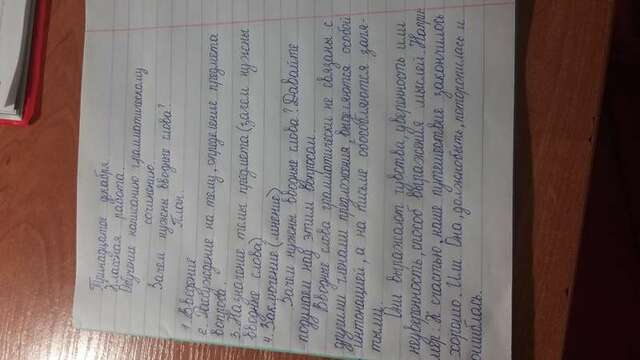 Тринадцатое декабря
Классная работа.
Обучение написанию грамматическому
сочинению.
Зачем нужны вводные слова?
План.
1. Введение
2. Рассуждение на тему, определение предмета
вопроса.
3. Назначение темы предмета (зачем нужны
вводные слова)
4. Заключение (мнение)
Зачем нужны вводные слова? Давайте
подумаем над этим вопросам.
Вводные слова грамматически не связаны с
другими членами предложения, выделяются особой
интонацией, а на письме обособляются запя-
тыми.
Они выражают чувства, уверенность или
неуверенность, способ выражения мыслей. Напри
мер: К счастью, наше путешествие закончилось
хорошо. Или Она, должнобыть, поторопилась и
ошиблась.